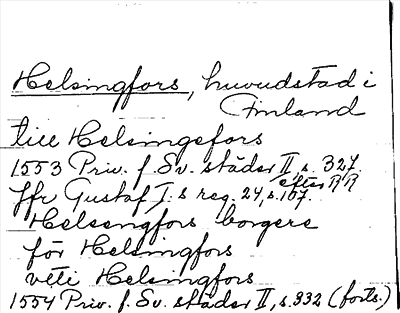 Helsingfors, huvudstad i
Finland
till Helsingefors
1553 Priv. f. Sv. städer II, s. 327
efter RR
Jfr Gustaf I:s reg. 24, s. 107.
Helsengfors borgere
för Helsingfors
véti Helsingfors
1554 Priv. f. Sv. städer II, s. 332 (forts.)